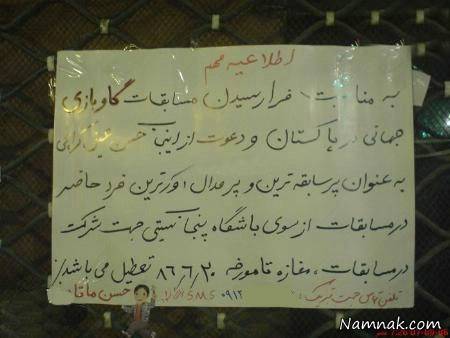 اطلاعیه مهم
به مناسبت فرارسیدن مسابقات گاوبازی
جهانی در پاکستان و دعوت از اینجانب حسن
به عنوان پرسابقه ترین و پر مدال آورترین فرد حاضر
در مسابقات از سوی باشگاه پنجا نسیتی جهت شرکت
در مسابقات، مغازه تا مورخه ۸۶/۶/۲۰ تعطیل می باشد
تلفن تماس جهت تبریک: ۰۹۱۲ SMS حسن ماتا
Namnak.com